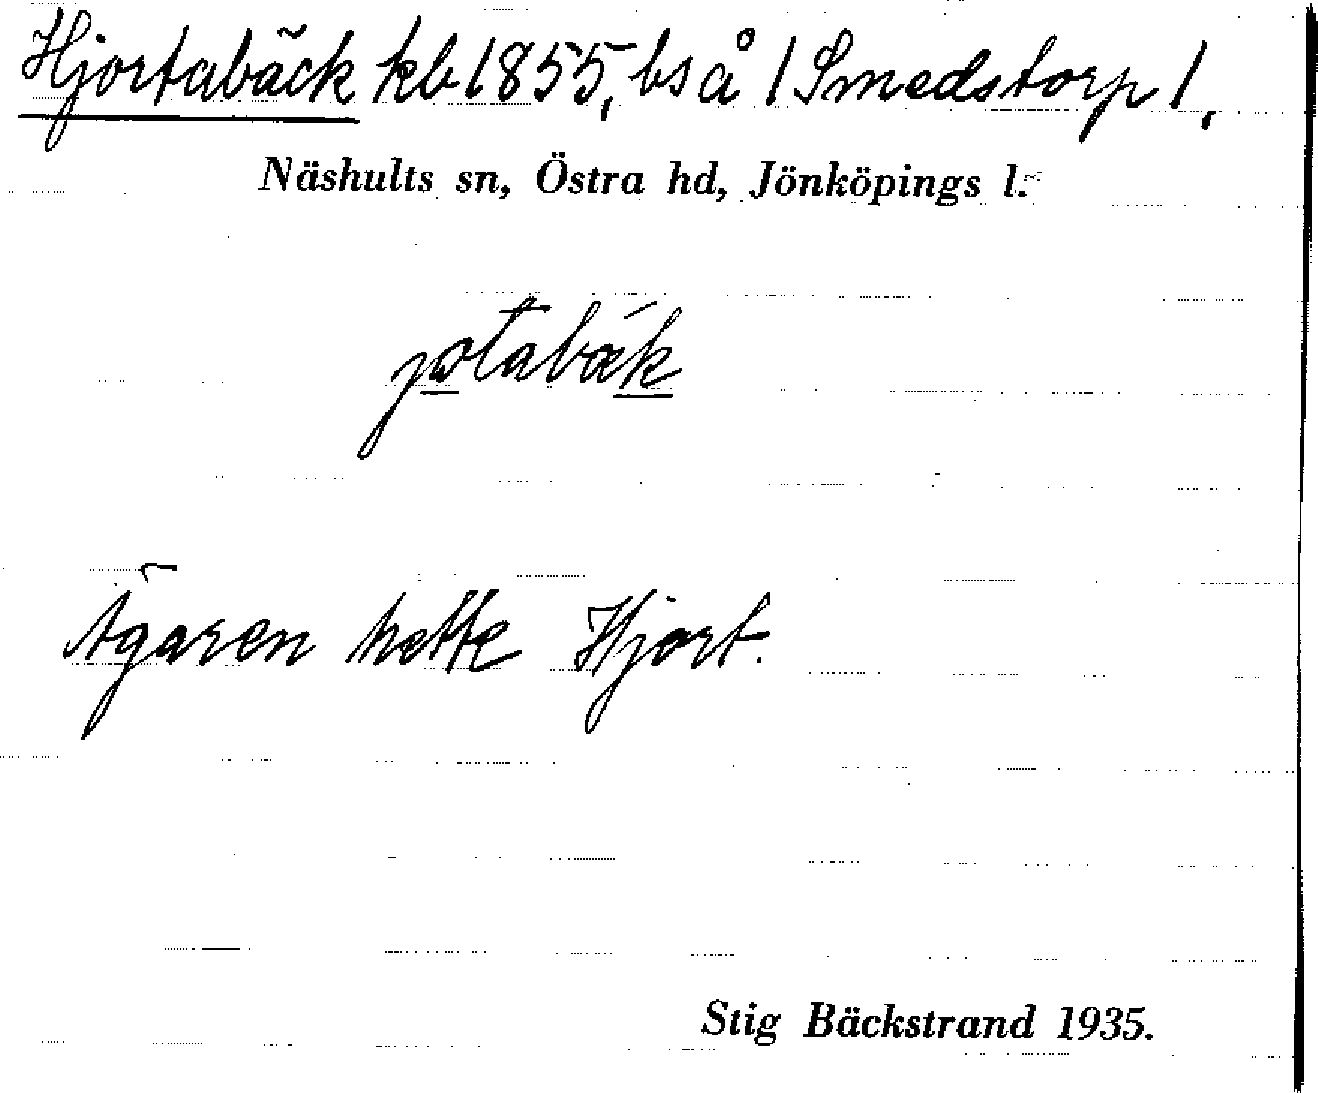 Hjortabäck kb 1855, bs å /Smedstorp/,
Näshults sn, Östra hd, Jönköpings l.
jotabæ´k
Ägaren hette Hjort.
Stig Bäckstrand 1935.